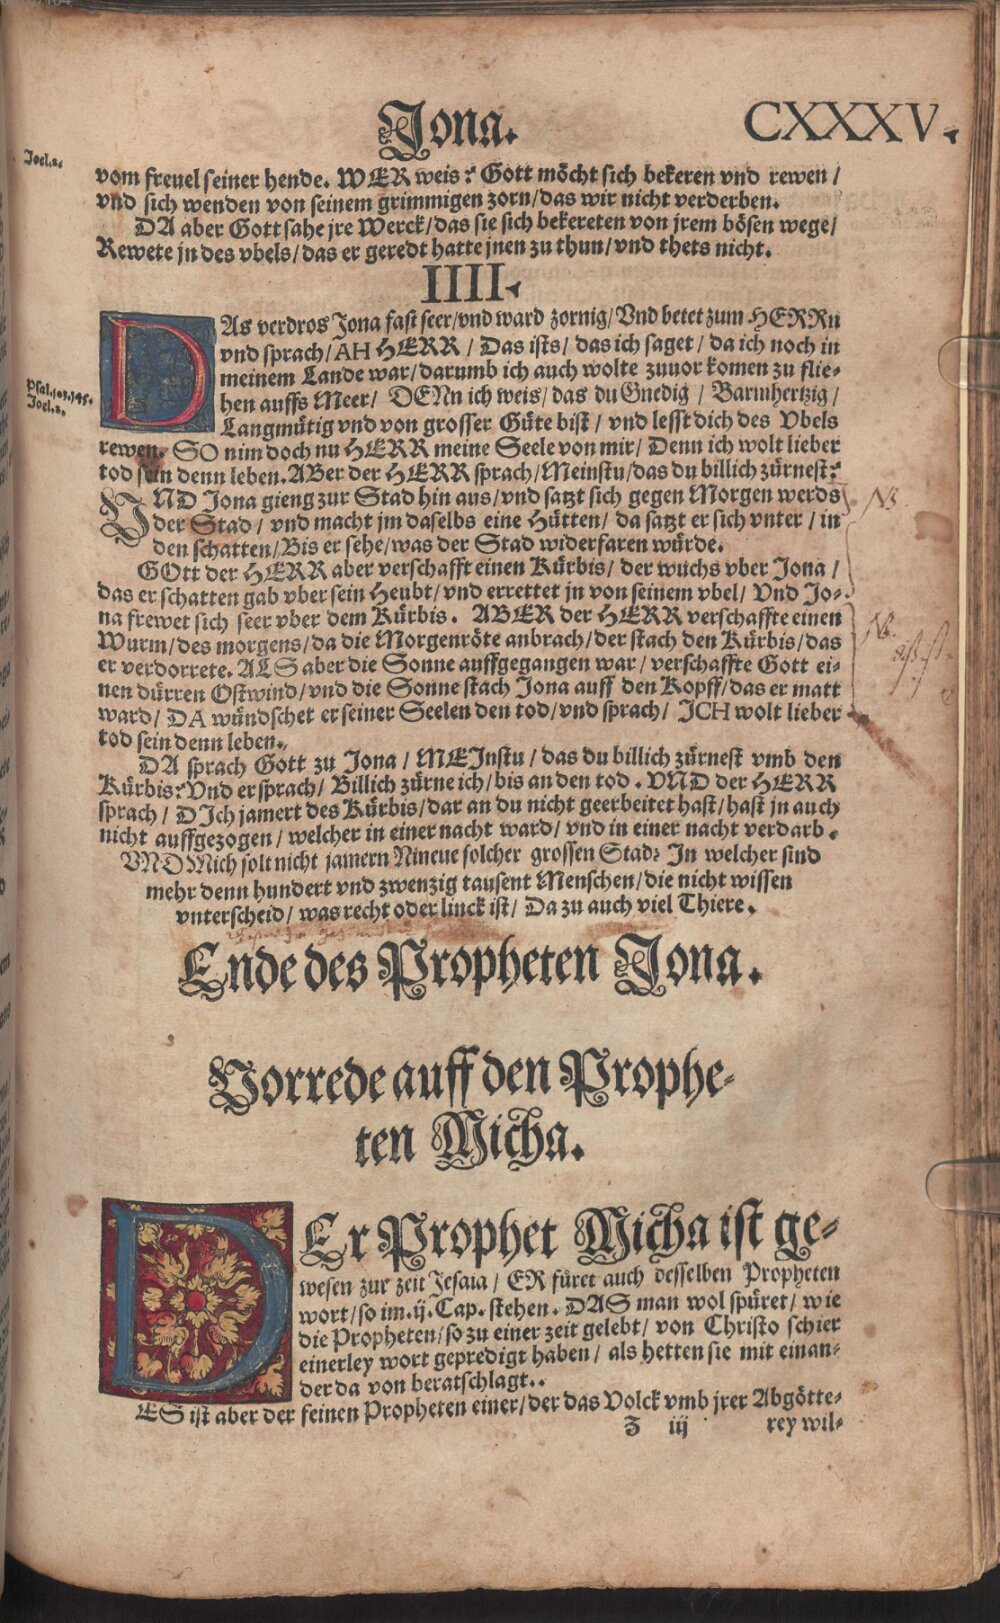 Jona.
CXXXV.
Joel.2.
vom freuel seiner hende. WER weis? Gott möcht sich bekeren vnd rewen /
vnd sich wenden von seinem grimmigen zorn / das wir nicht verderben.
DA aber Gott sahe jre Werck / das sie sich bekereten von jrem bösen wege /
Rewete jn des vbels / das er geredt hatte jnen zu thun / vnd thets nicht.
IIII.
DAs verdros Jona fast seer / vnd ward zornig / Vnd betet zum HERRn
vnd sprach / AH HERR / Das ists / das ich saget / da ich noch in
meinem Lande war / darumb ich auch wolte zuuor komen zu flie-
Psal.103.145.
Joel.2.
hen auffs Meer / DENn ich weis / das du Gnedig / Barmhertzig /
Langmütig vnd von grosser Güte bist / vnd lesst dich des Vbels
rewen. SO nim doch nu HERR meine Seele von mir / Denn ich wolt lieber
tod sein denn leben. ABer der HERR sprach / Meinstu / das du billich zürnest?
VND Jona gieng zur Stad hin aus / vnd satzt sich gegen Morgen werds
NB
der Stad / vnd macht jm daselbs eine Hütten / da satzt er sich vnter / in
den schatten / Bis er sehe / was der Stad widerfaren würde.
GOtt der HERR aber verschafft einen Kürbis / der wuchs vber Jona /
das er schatten gab vber sein Heubt / vnd errettet jn von seinem vbel / Vnd Jo-
na frewet sich seer vber dem Kürbis. ABER der HERR verschaffte einen
NB.
Wurm / des morgens / da die Morgenröte anbrach / der stach den Kürbis / das
er verdorrete. ALS aber die Sonne auffgegangen war / verschaffte Gott ei-
nen dürren Ostwind / vnd die Sonne stach Jona auff den Kopff / das er matt
ward / DA wündschet er seiner Seelen den tod / vnd sprach / ICH wolt lieber
tod sein denn leben.
DA sprach Gott zu Jona / MEInstu / das du billich zürnest vmb den
Kürbis? Vnd er sprach / Billich zürne ich / bis an den tod. VND der HERR
sprach / DIch jamert des Kürbis / dar an du nicht geerbeitet hast / hast jn auch
nicht auffgezogen / welcher in einer nacht ward / vnd in einer nacht verdarb.
VND Mich solt nicht jamern Nineue solcher grossen Stad? In welcher sind
mehr denn hundert vnd zwenzig tausent Menschen / die nicht wissen
vnterscheid / was recht oder linck ist / Da zu auch viel Thiere.
Ende des Propheten Jona.
Vorrede auff den Prophe-
ten Micha.
DEr Prophet Micha ist ge-
wesen zur zeit Jesaia / ER füret auch desselben Propheten
wort / so im .ij. Cap. stehen. DAS man wol spüret / wie
die Propheten / so zu einer zeit gelebt / von Christo schier
einerley wort gepredigt haben / als hetten sie mit einan-
der da von beratschlagt..
ES ist aber der feinen Propheten einer / der das Volck vmb jrer Abgötte-
Z iij
rey wil-